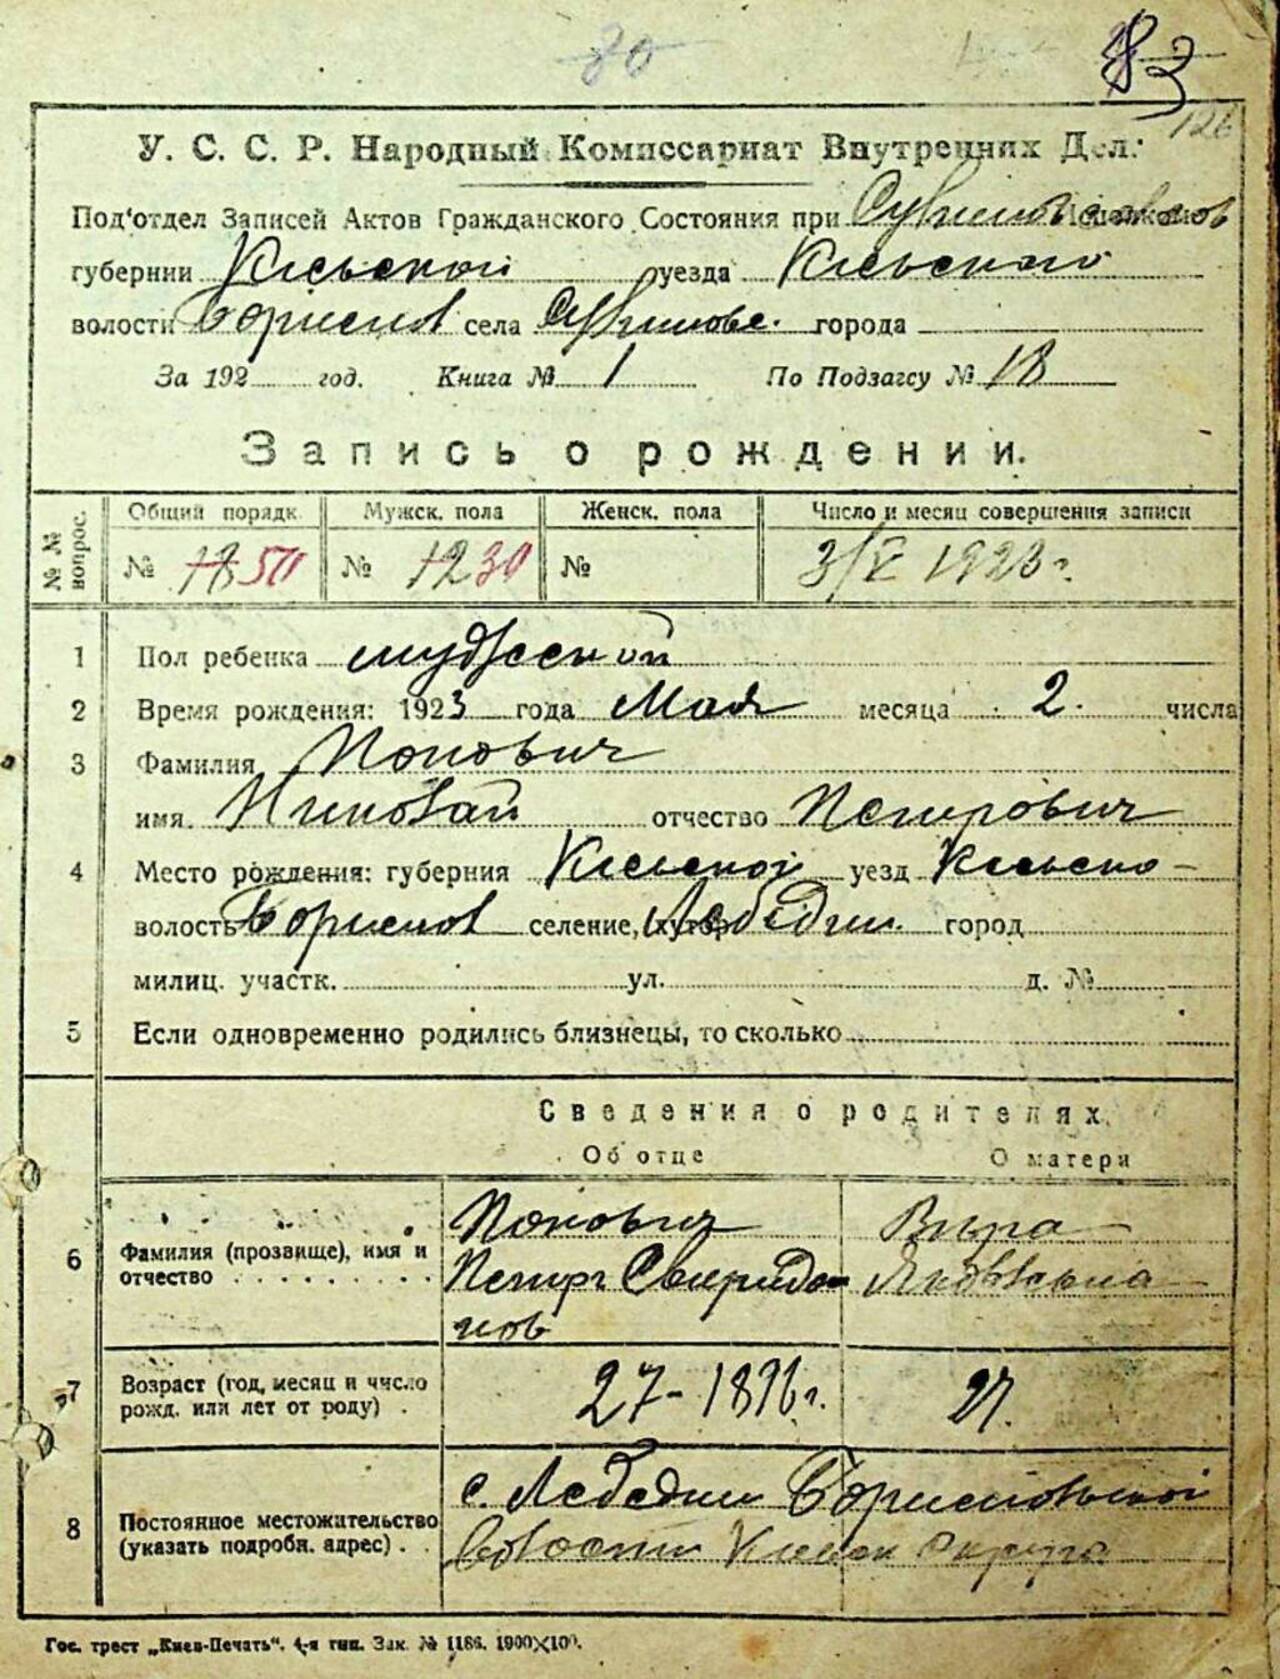 80
83
126
У. С. С. Р. Народный Комиссариат Внутренних Дел.
Под'отдел Записей Актов Гражданского Состояния при
губернии Киевской уезда Киевского
волости Бориспол села города
За 192 год. Книга № 1 По Подзагсу № 18
Запись о рождении.
№ № вопрос. Общий порядк. Мужск. пола Женск. пола Число и месяц совершения записи
№ 18 50 № 12 30 № 3/V 1923 г.
1 Пол ребенка мужской
2 Время рождения: 1923 года Мая месяца 2. числа
3 Фамилия Попович
имя Николай отчество Петрович
4 Место рождения: губерния Киевской уезд Киевско-
волость Бориспол селение, (хутор) Лебедин. город
милиц. участк. ул. д. №
5 Если одновременно родились близнецы, то сколько
Сведения о родителях
Об отце О матери
6 Фамилия (прозвище), имя и отчество Попович Вира
Петр Свиридо Яковлевна
нов
7 Возраст (год, месяц и число рожд. или лет от роду) 27-1896 г. 27.
8 Постоянное местожительство (указать подробн. адрес) с. Лебедин Бориспольской
волости Киевск округа
Гос. трест „Киев-Печать“. 4-я тип. Зак. № 1186. 1900×100.